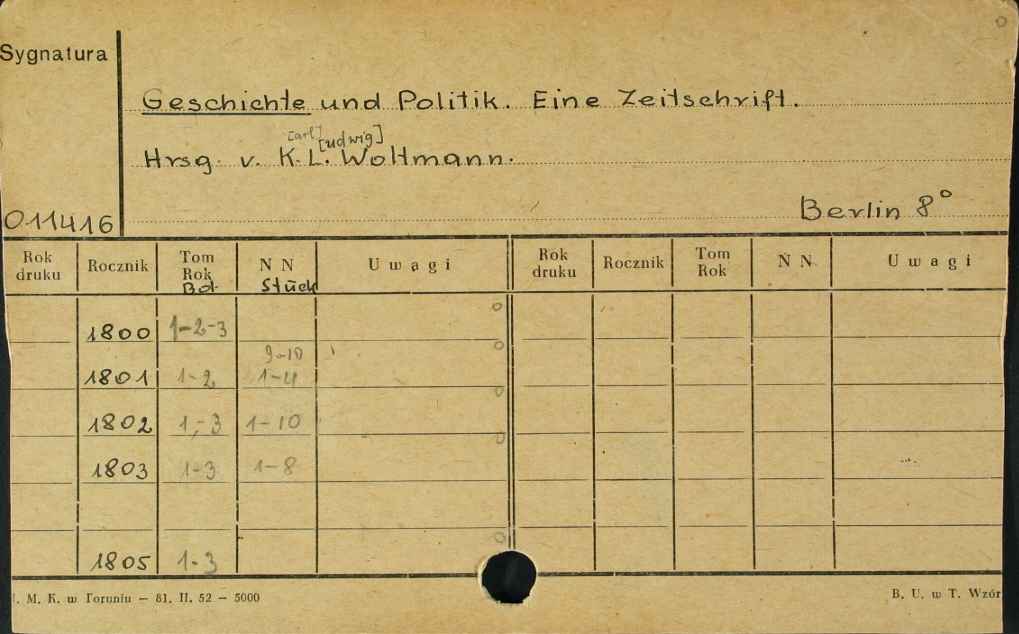 Sygnatura
Geschichte und Politik. Eine Zeitschrift.
[arl] [udwig]
Hrsg. v. K. L. Woltmann.
011416
Berlin 8°
Rok druku Rocznik Tom Rok Bd. N N Stück Uwagi Rok druku Rocznik Tom Rok N N Uwagi
1800 1-2-3
9-10
1801 1-2 1-4
1802 1,-3 1-10
1803 1-3 1-8
1805 1-3
. M. K. w Toruniu — 81. II. 52 — 5000
B. U. w T. Wzór